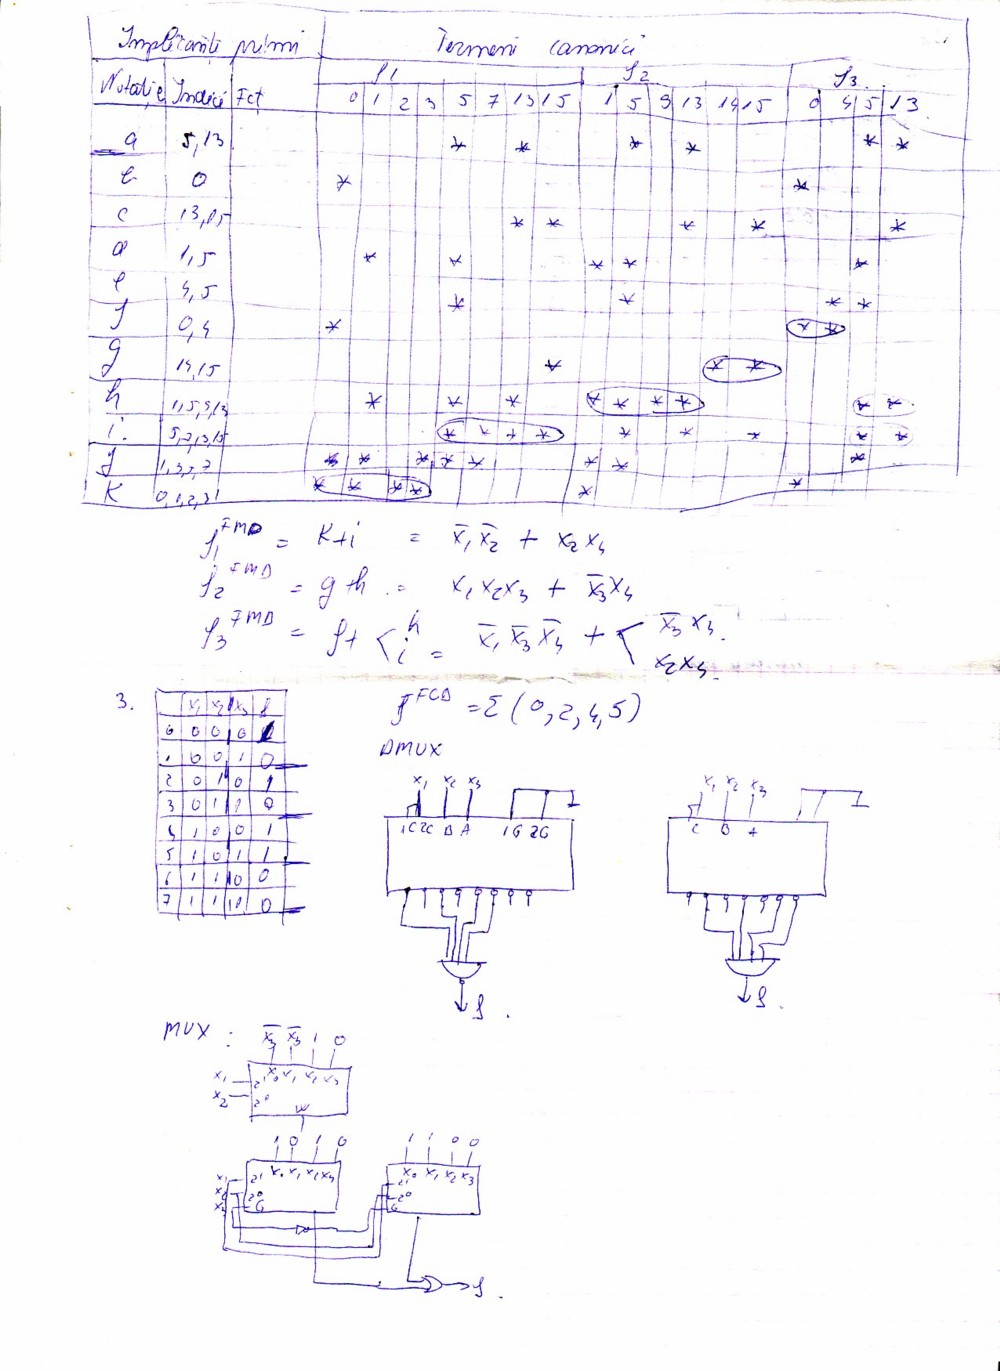 Implicanți primi Termeni canonici
f1 f2 f3
Notație Indici Fct 0 1 2 3 5 7 13 15 1 5 9 13 14 15 0 4 5 13
a 5,13 * * * * * *
b 0 * *
c 13,15 * * * * *
d 1,5 * * * * *
e 4,5 * * * *
f 0,4 * * *
g 14,15 * * *
h 1,5,9,13 * * * * * * * * *
i 5,7,13,15 * * * * * * * * *
j 1,3,5,7 * * * * * * * *
k 0,1,2,3 * * * * * *
f1 FMD = k+i = x̄1x̄2 + x2x4
f2 FMD = g+h = x1x2x3 + x̄3x4
f3 FMD = f + < h i = x̄1x̄3x̄4 + < x̄3x4 x2x4
3. x1 x2 x3 f
0 0 0 0 1
1 0 0 1 0
2 0 1 0 1
3 0 1 1 0
4 1 0 0 1
5 1 0 1 1
6 1 1 0 0
7 1 1 1 0
f FCD = Σ (0,2,4,5)
DMUX
x1 x2 x3
1C 2C B A 1G 2G
f
x1 x2 x3
C B A
f
MUX :
x̄3 x̄3 1 0
x1 2¹ x0 x1 x2 x3
x2 2⁰
W
1 0 1 0
x1 2¹ x0 x1 x2 x3
2⁰
G
1 1 0 0
x0 x1 x2 x3
2¹
2⁰
G
f